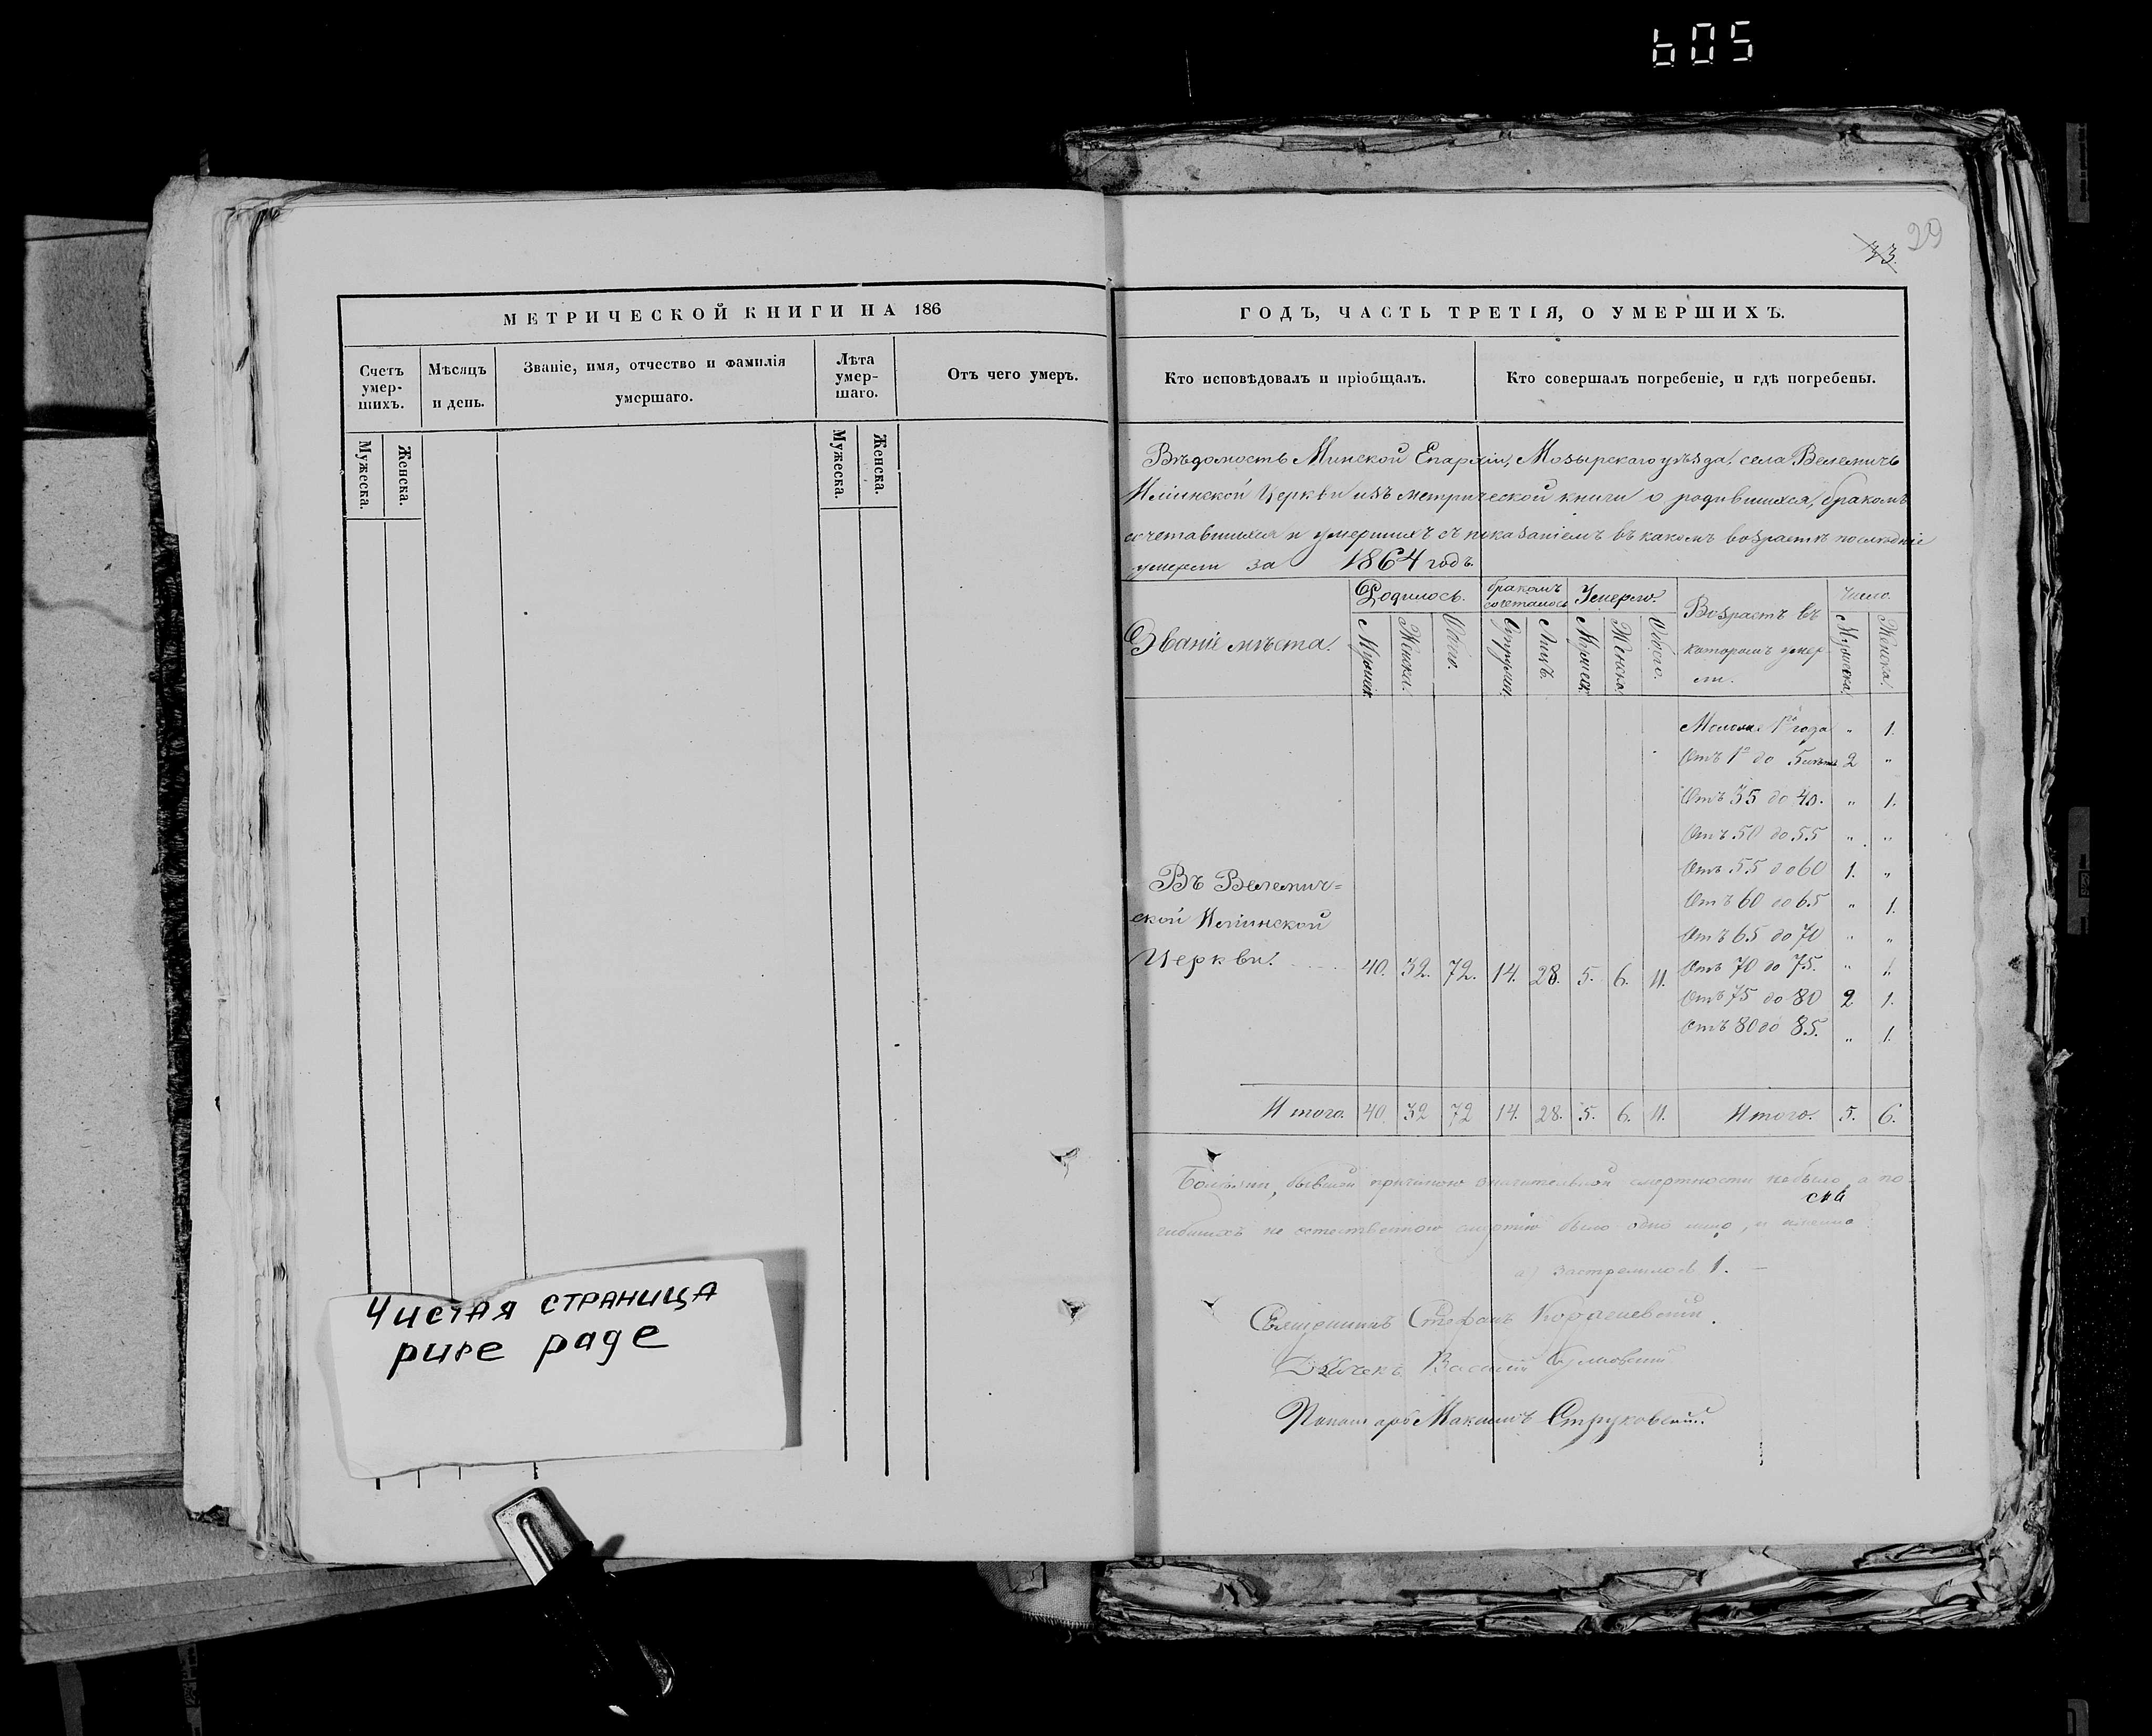 605
33.
29
МЕТРИЧЕСКОЙ КНИГИ НА 186
Счетъ умер-шихъ.
Мѣсяцъ и день.
Званіе, имя, отчество и фамилія умершаго.
Лѣта умер-шаго.
Отъ чего умеръ.
Мужеска.
Женска.
Мужеска.
Женска.
Чистая страница
pure page
ГОДЪ, ЧАСТЬ ТРЕТІЯ, О УМЕРШИХЪ.
Кто исповѣдовалъ и пріобщалъ.
Кто совершалъ погребеніе, и гдѣ погребены.
Вѣдомость Минской Епархіи, Мозырскаго уѣзда села Велемичъ
Иліинской Церкви изъ метрической книги о родившихся, бракомъ
сочетавшихся и умершихъ съ показаніемъ въ какомъ возрастѣ послѣдніе
умерли за 1864 годъ.
Званіе мѣста.
Родилось.
бракомъ сочеталось
Умерло.
Возрастъ въ которомъ умер-ли.
Число.
Мужеск.
Женска.
Обоего.
Супруж.
Лицъ.
Мужеск.
Женска.
Обоего.
Мужеска.
Женска.
Моложе 1го года " 1.
Отъ 1го до 5 лѣтъ 2 "
Отъ 35 до 40. " 1.
Отъ 50 до 55 " "
Отъ 55 до 60 1. "
Отъ 60 до 65 " 1.
Отъ 65 до 70 " "
Отъ 70 до 75. " 1.
Отъ 75 до 80 2 1.
Отъ 80 до 85. " 1.
Въ Велемич=
ской Иліинской
Церкви. 40. 32. 72. 14. 28. 5. 6. 11.
Итого. 40. 32 72 14. 28. 5. 6. 11. Итого. 5. 6.
Болѣзни, бывшей причиною значительной смертности небыло, а по-
гибшихъ не естественною смертію было одно лицо, и именно
а) застрелился 1.
Священникъ Стефанъ
Дьячекъ Василій
Пономарь Максимъ Струковскій.